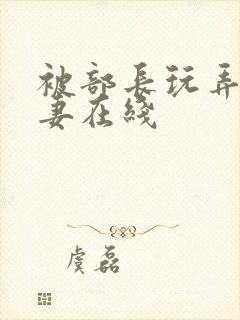 被部长玩弄
妻在线
虞磊